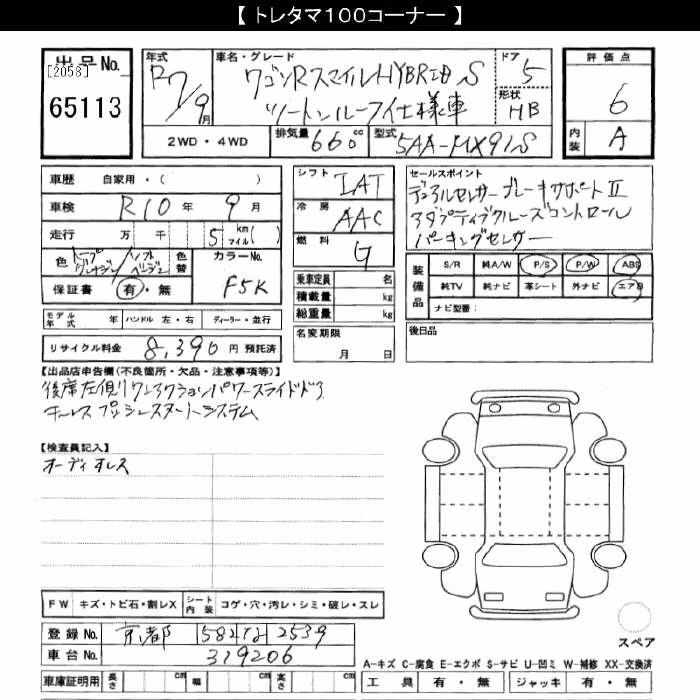 【 トレタマ100コーナー 】
出品No.
[2058]
65113
年式 R7/9月
車名・グレード ワゴンRスマイルHYBRID S
ツートンルーフ仕様車
ドア 5
形状 HB
評価点 6
内装 A
2WD・4WD
排気量 660cc
型式 5AA-MX91S
車歴 自家用・( )
車検 R10年 9月
走行 万 千 5 km マイル( )
色 色替
カラーNo. F5K
保証書 有・無
モデル年式 年 ハンドル 左・右 ディーラー・並行
リサイクル料金 8,390円預託済
シフト IAT
冷房 AAC
燃料 G
乗車定員 名
積載量 kg
総重量 kg
名変期限
月 日
セールスポイント
デュアルセンサーブレーキサポートⅡ
アダプティブクルーズコントロール
パーキングセンサー
装備品
S/R 純A/W P/S P/W ABS
純TV 純ナビ 革シート 外ナビ エアB
ナビ型番:
後日品
【出品店申告欄(不良箇所・欠品・注意事項等)】
後席左側りワンアクションパワースライドドア
キーレスプッシュスタートシステム
【検査員記入】
オーディオレス
FW キズ・トビ石・割レX シート内装 コゲ・穴・汚レ・シミ・破レ・スレ
登録No. 京都 582 2539
車台No. 319206
車庫証明用 長さ cm 幅 cm 高さ cm
スペア
A-キズ C-腐食 E-エクボ S-サビ U-凹ミ W-補修 XX-交換済
工具 有・無 ジャッキ 有・無